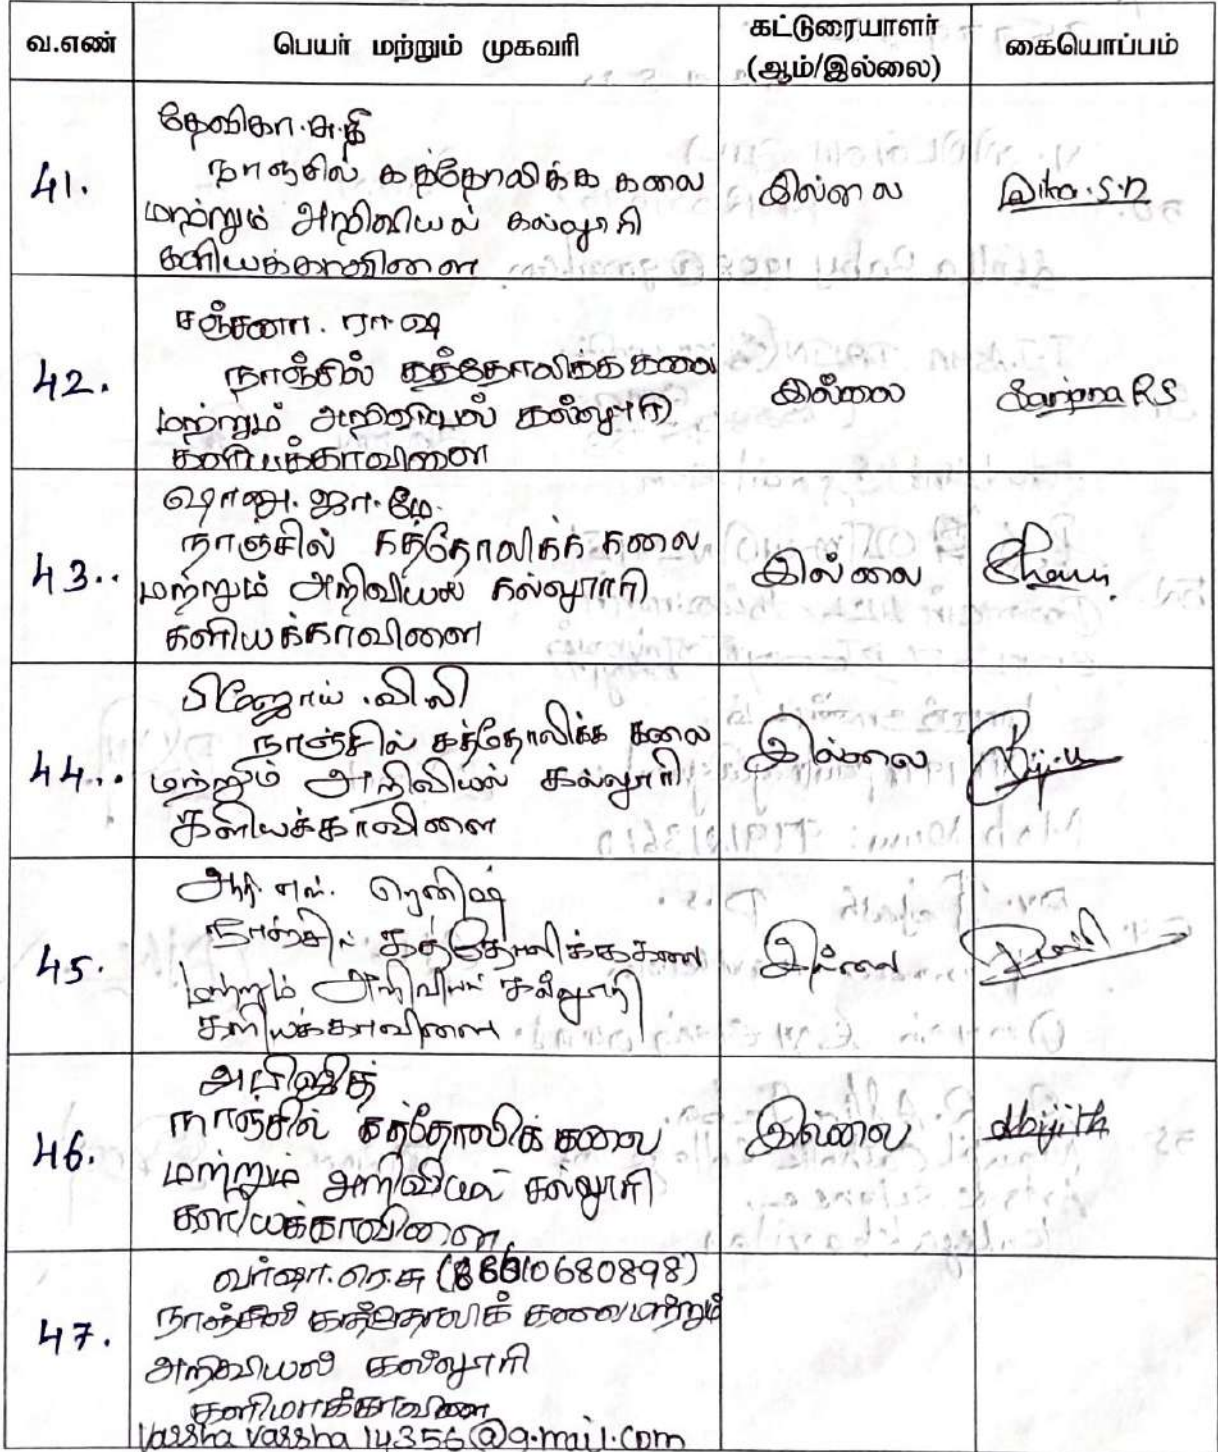 வ.எண் பெயர் மற்றும் முகவரி கட்டுரையாளர் (ஆம்/இல்லை) கையொப்பம்
41.
தேவிகா.சு.தி
நாஞ்சில் கத்தோலிக்க கலை
மற்றும் அறிவியல் கல்லூரி
களியக்காவிளை
இல்லை
42.
சஞ்சனா. ரா.ஷ
நாஞ்சில் கத்தோலிக்க கலை
மற்றும் அறிவியல் கல்லூரி
களியக்காவிளை
இல்லை
Sanjana RS
43..
ஷானு. ஜா. மே.
நாஞ்சில் கத்தோலிக்க கலை
மற்றும் அறிவியல் கல்லூரி
களியக்காவிளை
இல்லை
44..
பிஜோய் .வி.லி
நாஞ்சில் கத்தோலிக்க கலை
மற்றும் அறிவியல் கல்லூரி
களியக்காவிளை
இல்லை
45.
ஆர். எஸ். ரெனிஷ்
நாஞ்சில் கத்தோலிக்க கலை
மற்றும் அறிவியல் கல்லூரி
களியக்காவிளை
இல்லை
46.
அபிஜித்
நாஞ்சில் கத்தோலிக் கலை
மற்றும் அறிவியல் கல்லூரி
களியக்காவிளை.
இல்லை
Abijith
47.
வர்ஷா.ரெ.சு
நாஞ்சில் கத்தோலிக் கலை மற்றும்
அறிவியல் கல்லூரி
களியாக்காவிளை
Varsha varsha 14356@g.mail.com